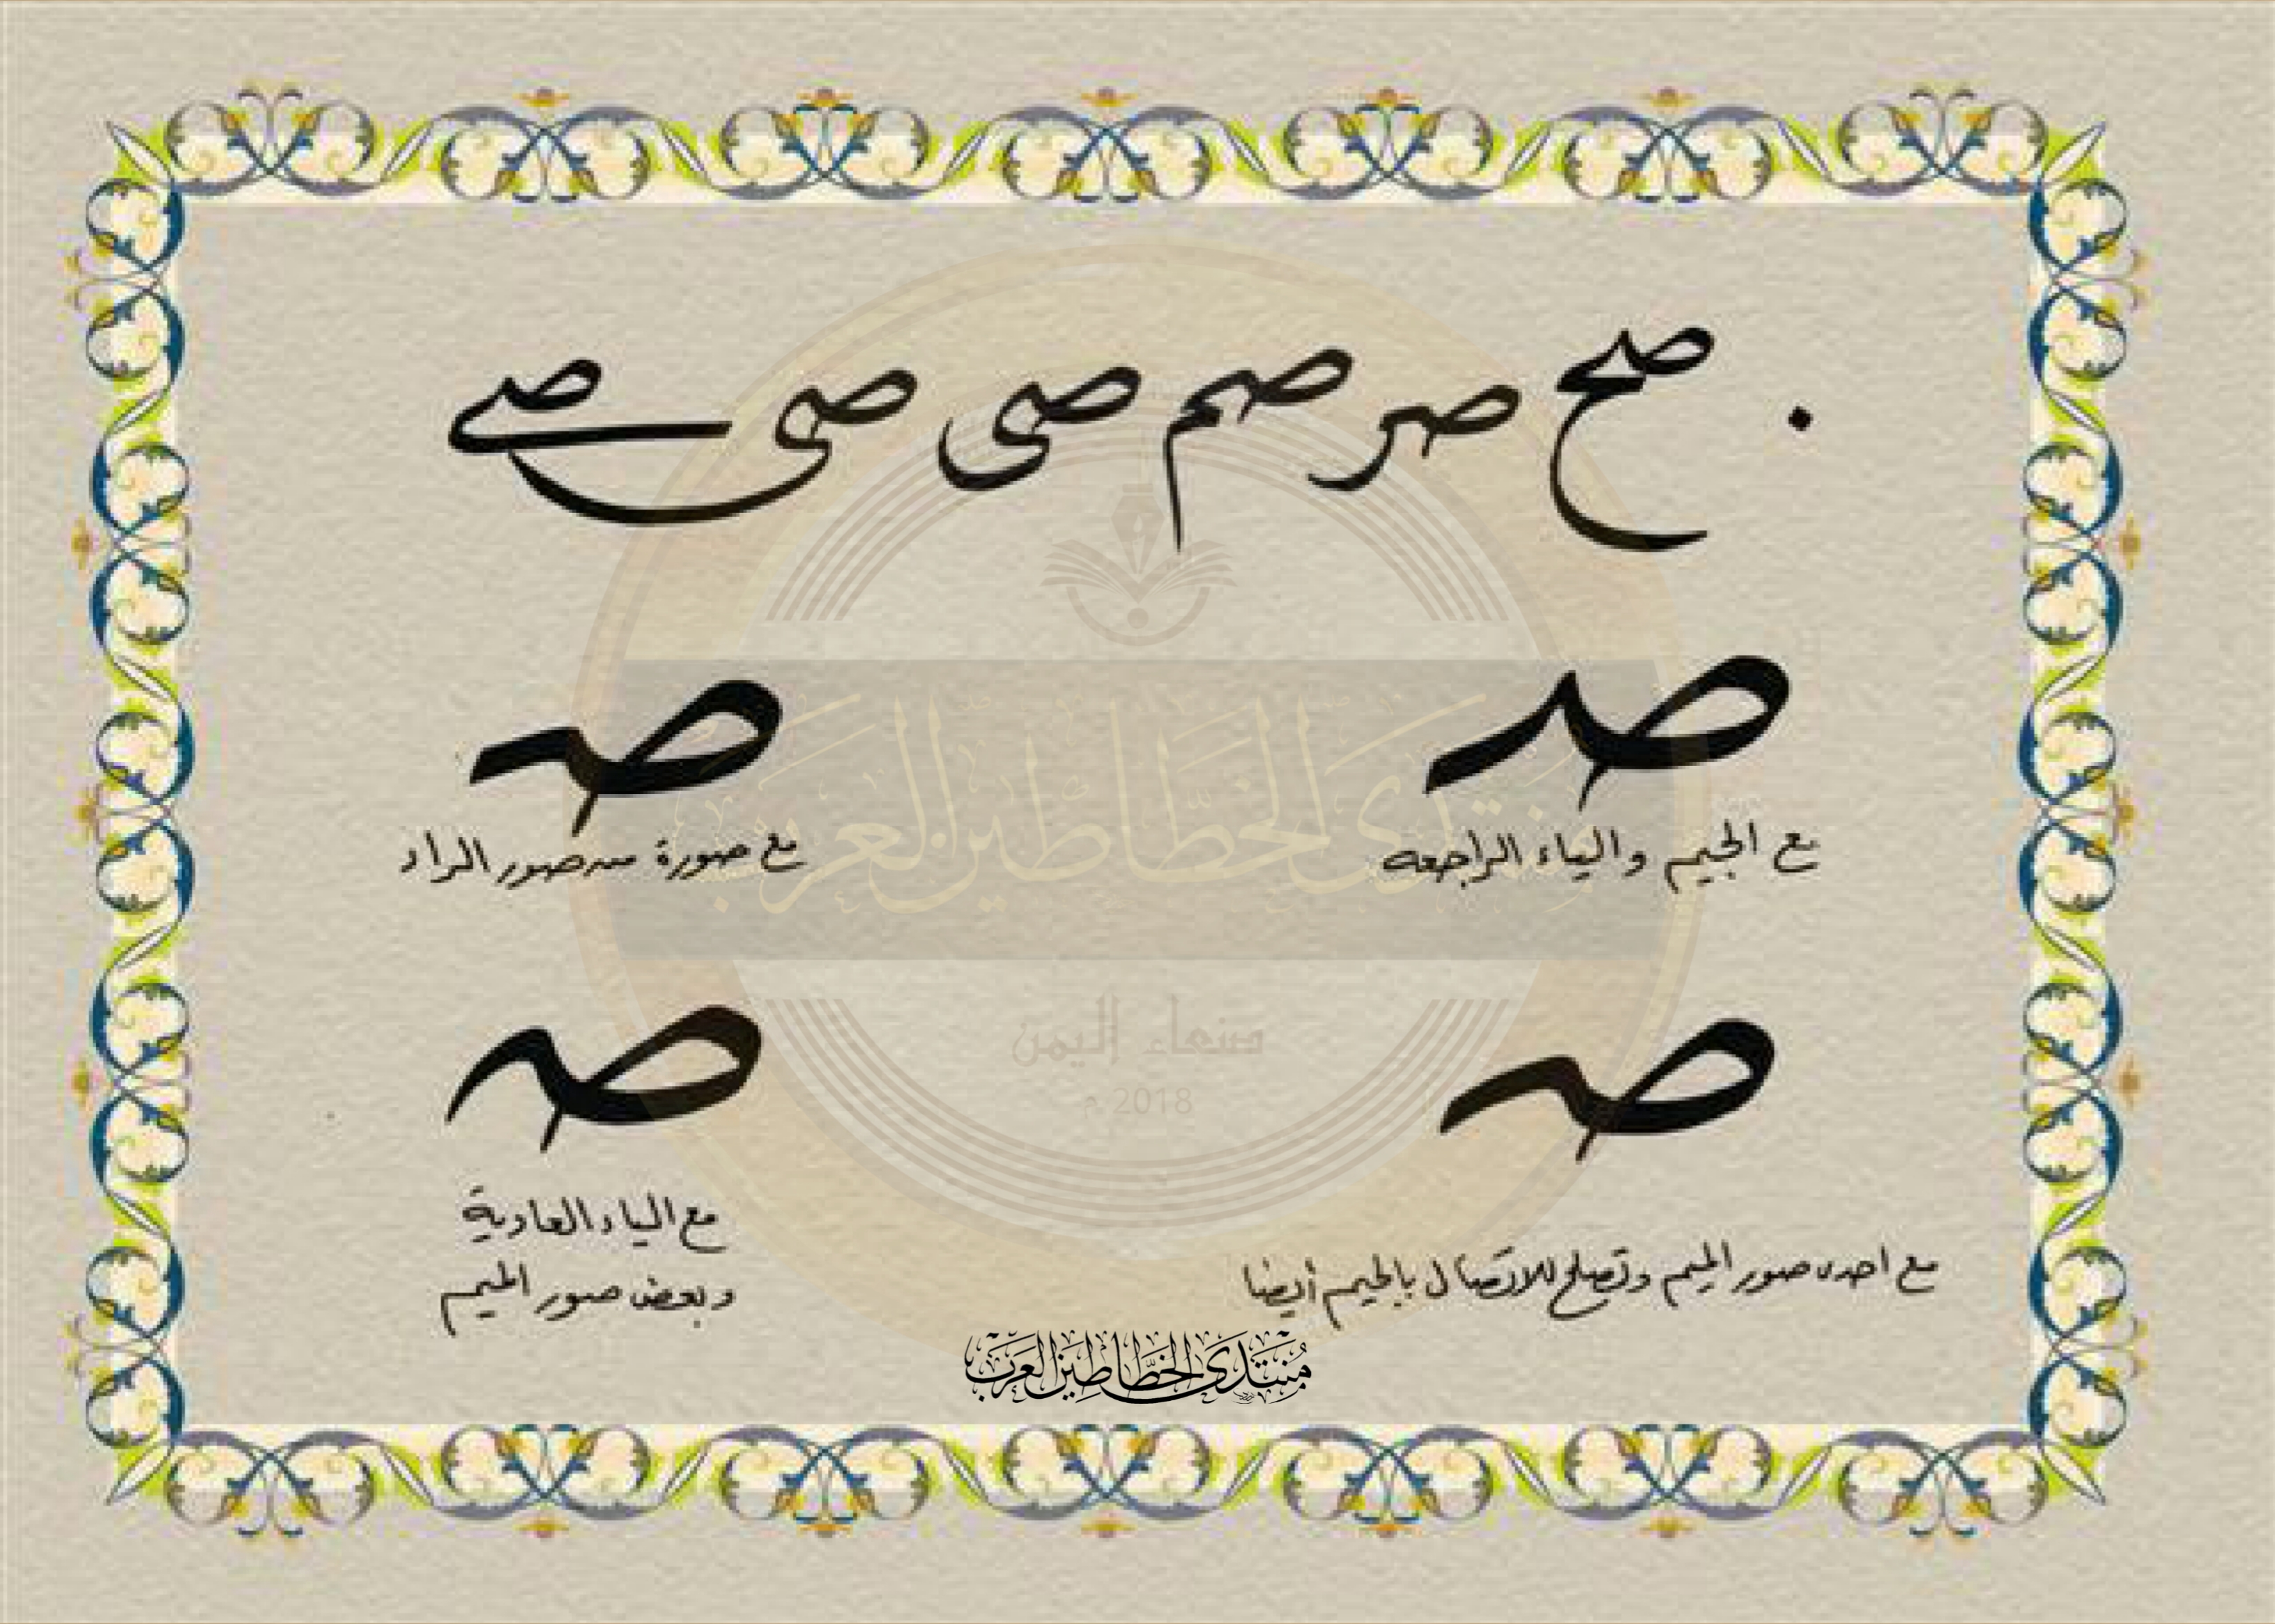 صح صر صم صى صى صے
صد صہ
مع الجيم والياء الراجعه مع صورة من صور الراء
منتدى الخطاطين العرب
صہ صہ
صنعاء اليمن
2018 م
مع الياء العادية
مع احدى صور الميم وتصلح للاتصال بالجيم أيضا
وبعض صور الميم
منتدى الخطاطين العرب